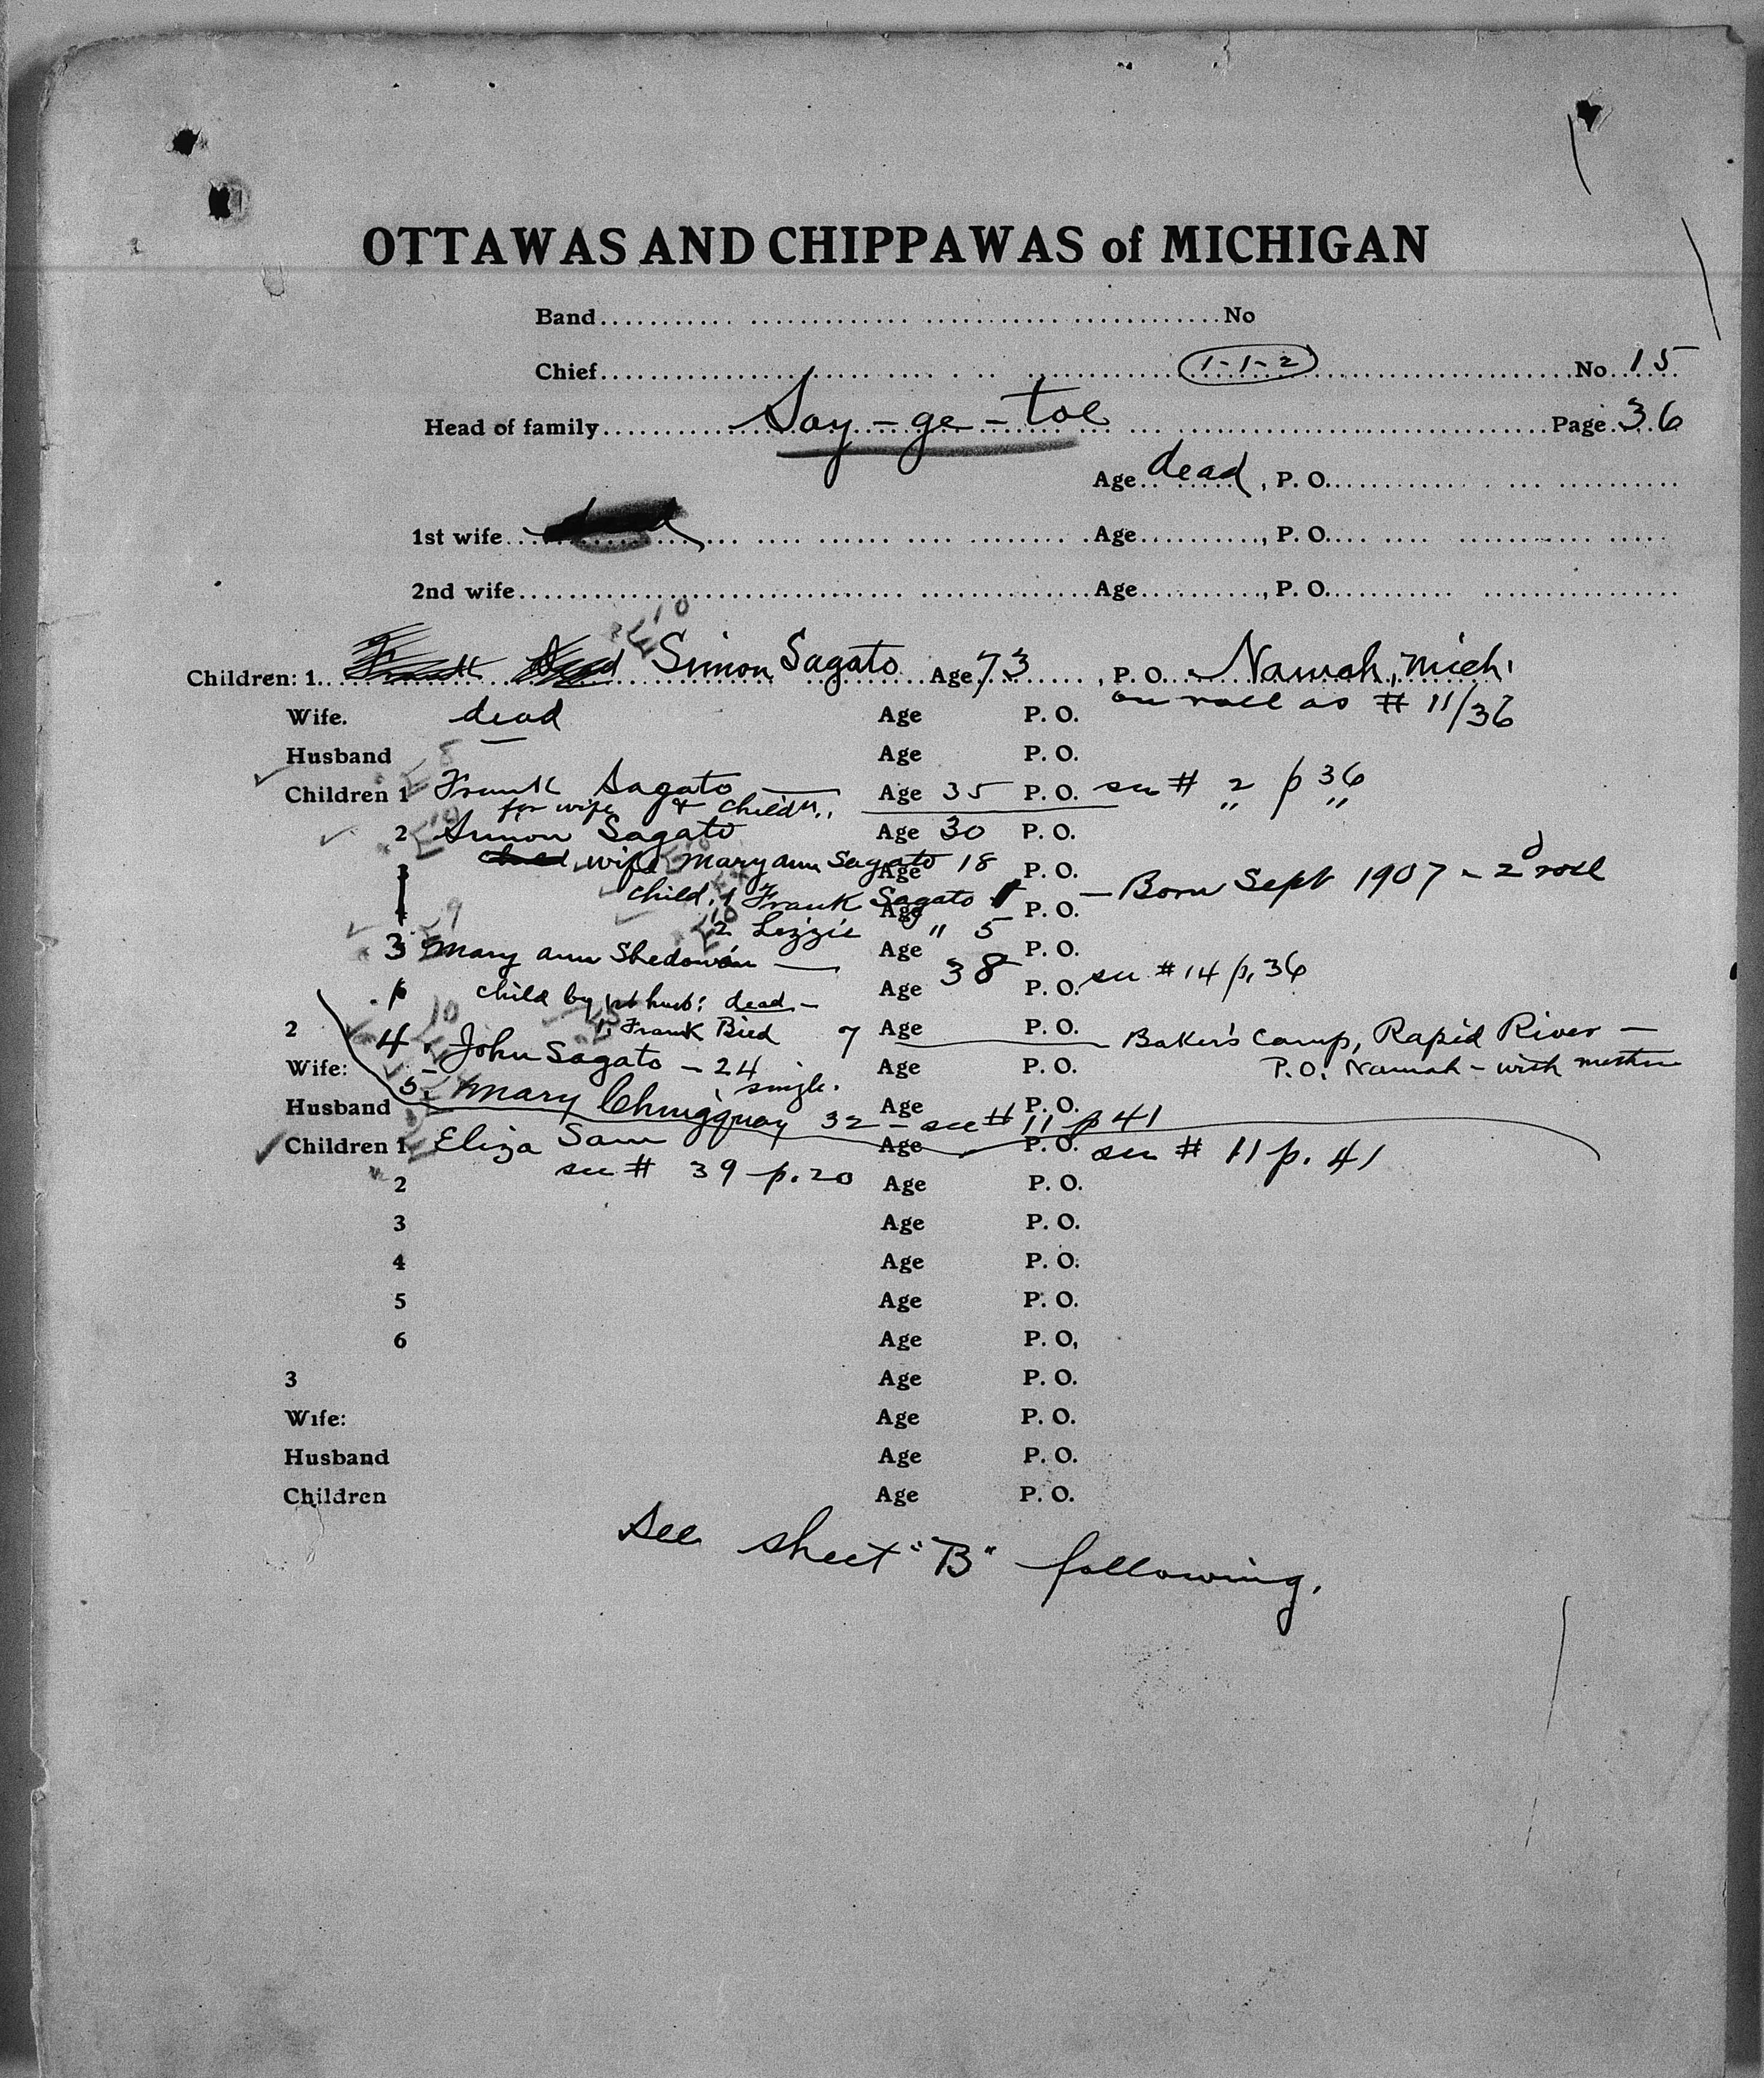 OTTAWAS AND CHIPPAWAS of MICHIGAN
Band No
Chief 1-1-2 No. 15
Head of family Say-ge-toe Page 36
Age dead, P. O.
1st wife Age , P. O.
2nd wife Age , P. O.
Children: 1. Simon Sagato Age 73, P. O. Namah, Mich.
Wife. dead Age P. O. on roll as # 11/36
Husband Age P. O.
Children 1 Frank Sagato Age 35 P. O. see # 2 p 36
for wife & childn. " "
2 Simon Sagato Age 30 P. O.
wife Mary ann Sagato 18 Age P. O.
child: 1 Frank Sagato Age P. O. — Born Sept 1907 - 2d roll
2 Lizzie " 5
3 Mary ann Shedowin — Age 38 P. O. see #14 p. 36
child by 1st husb: dead — Age P. O.
2 1. Frank Bird 7 Age P. O. Baker's Camp, Rapid River —
4. John Sagato - 24 single.
Wife: Age P. O. P.O. Namah - with mother
5. Mary Chingquay 32 - see # 11 p 41
Husband Age P. O.
Children 1 Eliza Sam Age P. O. see # 11 p. 41
see # 39 p. 20
2 Age P. O.
3 Age P. O.
4 Age P. O.
5 Age P. O.
6 Age P. O,
3 Age P. O.
Wife: Age P. O.
Husband Age P. O.
Children Age P. O.
See sheet "B" following.